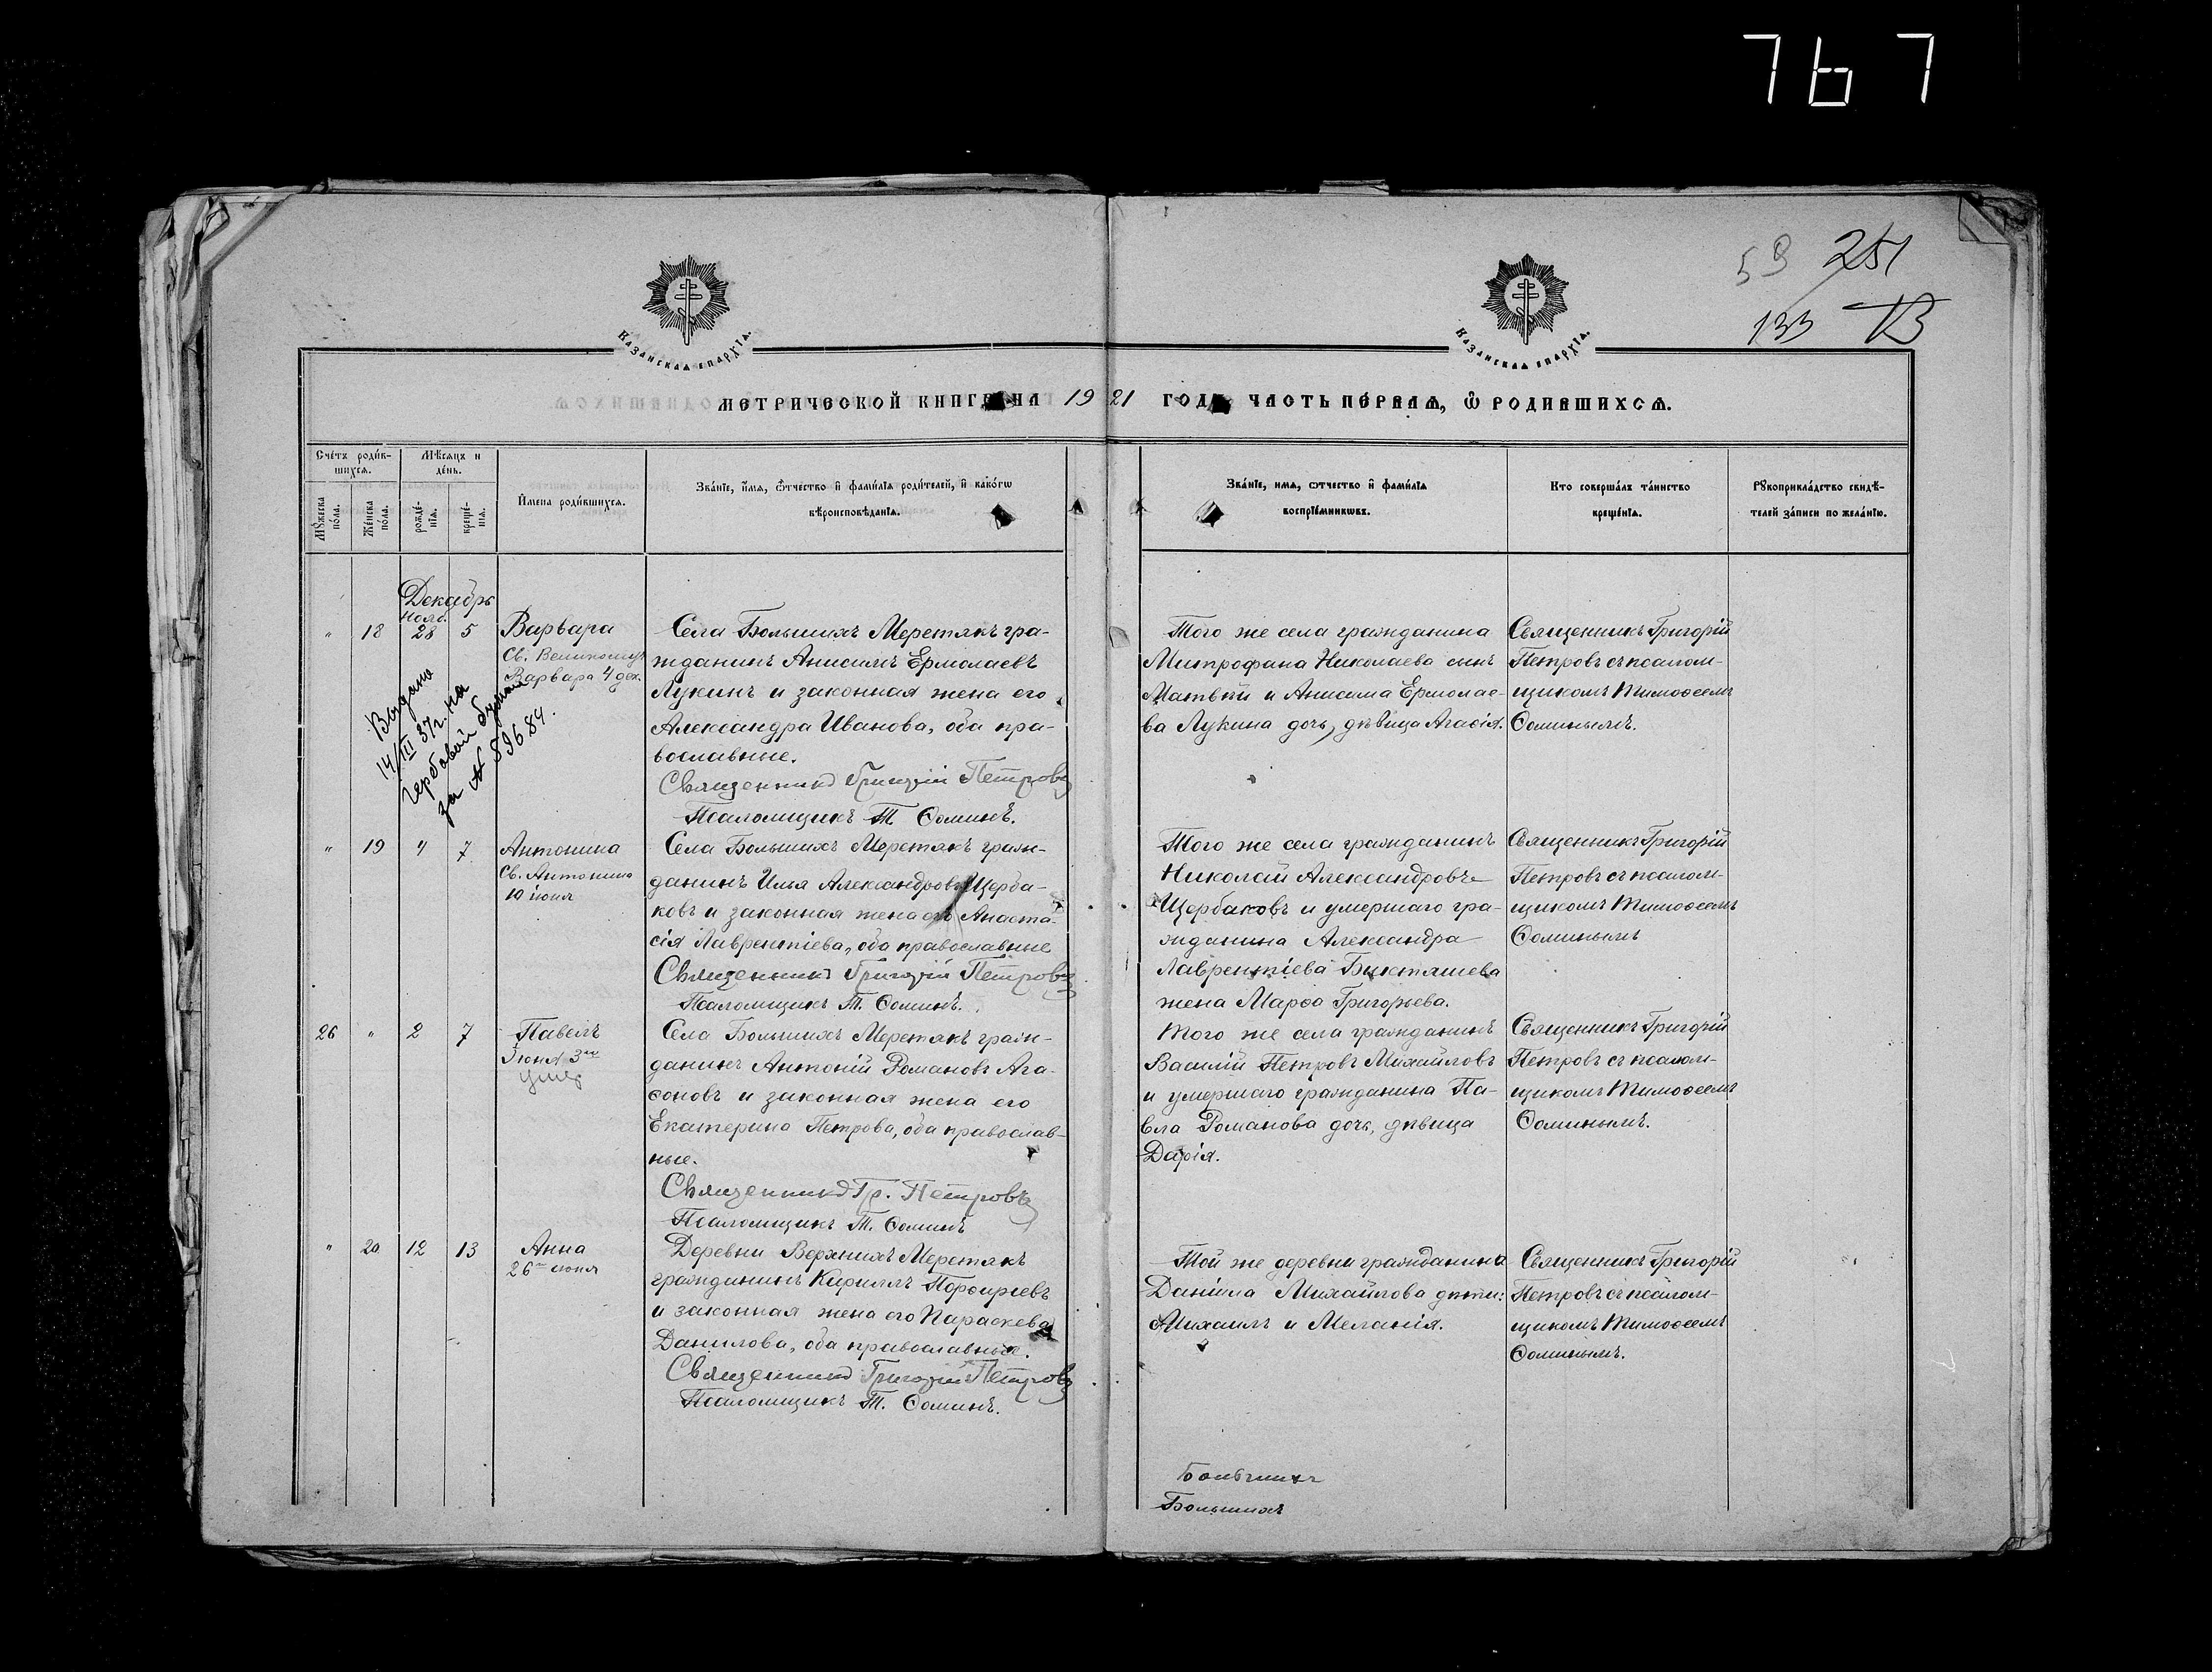 767
59 251
133
КАЗАНСКАЯ ЕПАРХІЯ.
КАЗАНСКАЯ ЕПАРХІЯ.
МЕТРИЧЕСКОЙ КНИГИ НА 1921 ГОДЪ ЧАСТЬ ПЕРВАЯ, Ѿ РОДИВШИХСЯ.
Сче́тъ роди́в-
шихся.
Мѣ́сяцъ и
де́нь.
Мꙋ́жеска
по́ла.
Же́нска
по́ла.
рожде́-
нія.
креще́-
нія.
И́мена роди́вшихся.
Зва́ніе, и́мя, ѻ́тчество и҆ фами́лія роди́телей, и҆ како́гѡ
вѣроисповѣ́данія.
Зва́ніе, имя, ѻтчество и҆ фами́лія
воспріе́мниковъ.
Кто соверша́лъ та́инство
креще́нія.
Рꙋкоприкла́дство свидѣ́-
телей за́писи по жела́нію.
Декабрь
нояб.
" 18 28 5
Варвара
Св. Великомуч.
Варвара 4 дек.
Выдано
14/III 37 г. на
гербовой бумаге
за № 839684.
Села Большихъ Меретякъ гра-
жданинъ Анисимъ Ермолаевъ
Лукинъ и законная жена его
Александра Иванова, оба пра-
вославные.
Священникъ Григорій Петровъ
Псаломщикъ Т. Ѳоминъ.
Того же села гражданина
Митрофана Николаева сынъ
Матвѣй и Анисима Ермолае-
ва Лукина дочь, дѣвица Агаѳія.
Священникъ Григорій
Петровъ съ псалом-
щикомъ Тимоѳеемъ
Ѳоминымъ.
" 19 4 7
Антонина
Св. Антонина
10 іюня
Села Большихъ Меретякъ граж-
данинъ Илья Александровъ Щерба-
ковъ и законная жена его Анаста-
сія Лаврентіева, оба православные
Священникъ Григорій Петровъ
Псаломщикъ Т. Ѳоминъ.
Того же села гражданинъ
Николай Александровъ
Щербаковъ и умершаго гра-
жданина Александра
Лаврентіева Бикташева
жена Марѳа Григорьева.
Священникъ Григорій
Петровъ съ псалом-
щикомъ Тимоѳеемъ
Ѳоминымъ
26 " 2 7
Павелъ
Іюня 3го
умер
Села Большихъ Меретякъ граж-
данинъ Антоній Романовъ Ага-
ѳоновъ и законная жена его
Екатерина Петрова, оба православ-
ные.
Священникъ Гр. Петровъ
Псаломщикъ Т. Ѳоминъ
Того же села гражданинъ
Василій Петровъ Михайловъ
и умершаго гражданина Па-
вла Романова дочь, дѣвица
Дарія.
Священникъ Григорій
Петровъ съ псалом-
щикомъ Тимоѳеемъ
Ѳоминымъ.
" 20 12 13
Анна
26го іюля
Деревни Верхнихъ Меретякъ
гражданинъ Кириллъ Порфирьевъ
и законная жена его Параскева
Данилова, оба православные.
Священникъ Григорій Петровъ
Псаломщикъ Т. Ѳоминъ.
Той же деревни гражданина
Даніила Михайлова дѣти:
Михаилъ и Меланія.
Священникъ Григорій
Петровъ съ псалом-
щикомъ Тимоѳеемъ
Ѳоминымъ.
Большихъ
Большихъ